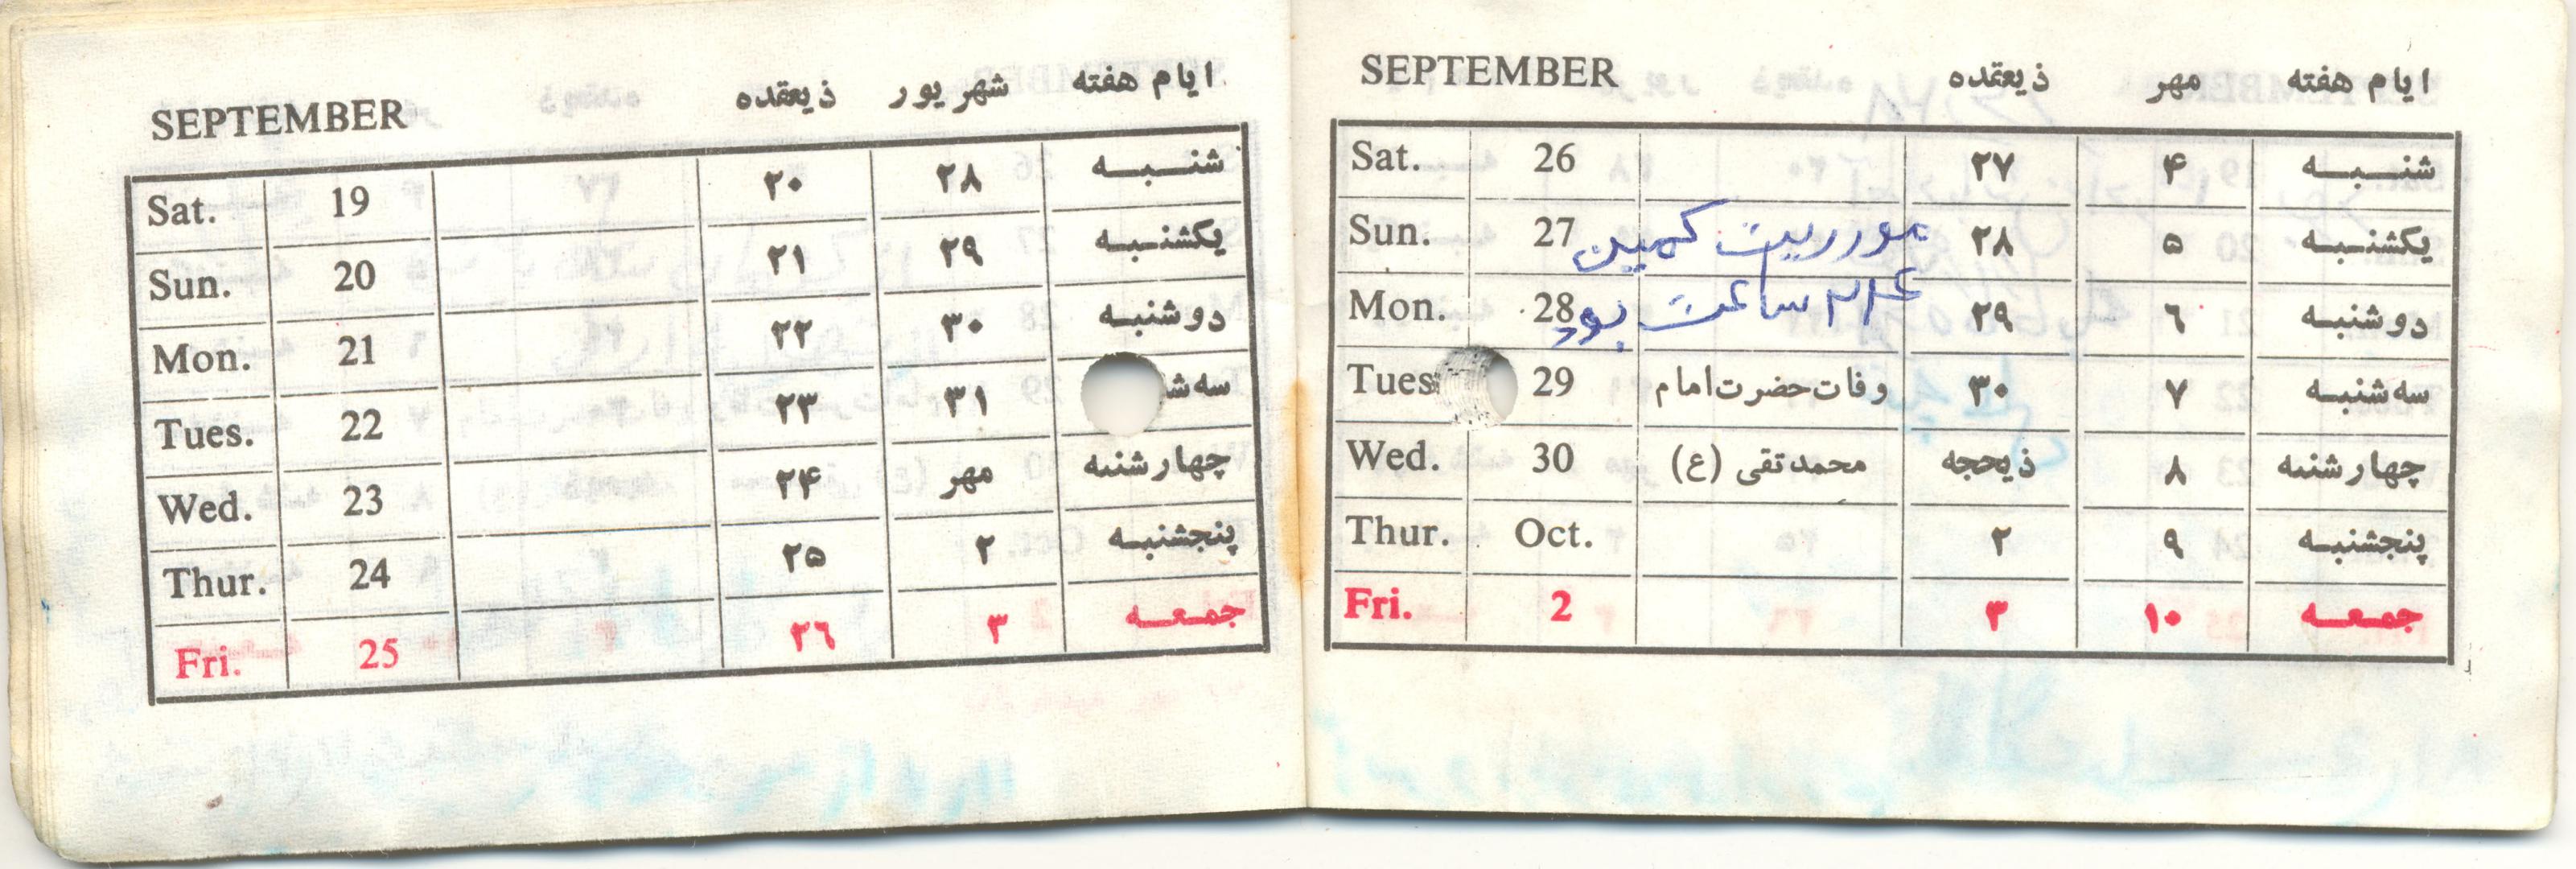 SEPTEMBER ذیعقده شهریور ایام هفته
Sat. 19 ۲۰ ۲۸ شنبه
Sun. 20 ۲۱ ۲۹ یکشنبه
Mon. 21 ۲۲ ۳۰ دوشنبه
Tues. 22 ۲۳ ۳۱ سه‌ش
Wed. 23 ۲۴ مهر چهارشنبه
Thur. 24 ۲۵ ۲ پنجشنبه
Fri. 25 ۲۶ ۳ جمعه
SEPTEMBER ذیعقده مهر ایام هفته
Sat. 26 ۲۷ ۴ شنبه
Sun. 27 کمین ۲۸ ۵ یکشنبه
Mon. 28 ساعت بود ۲۹ ۶ دوشنبه
Tues 29 وفات حضرت امام ۳۰ ۷ سه‌شنبه
Wed. 30 محمدتقی (ع) ذیحجه ۸ چهارشنبه
Thur. Oct. ۲ ۹ پنجشنبه
Fri. 2 ۳ ۱۰ جمعه